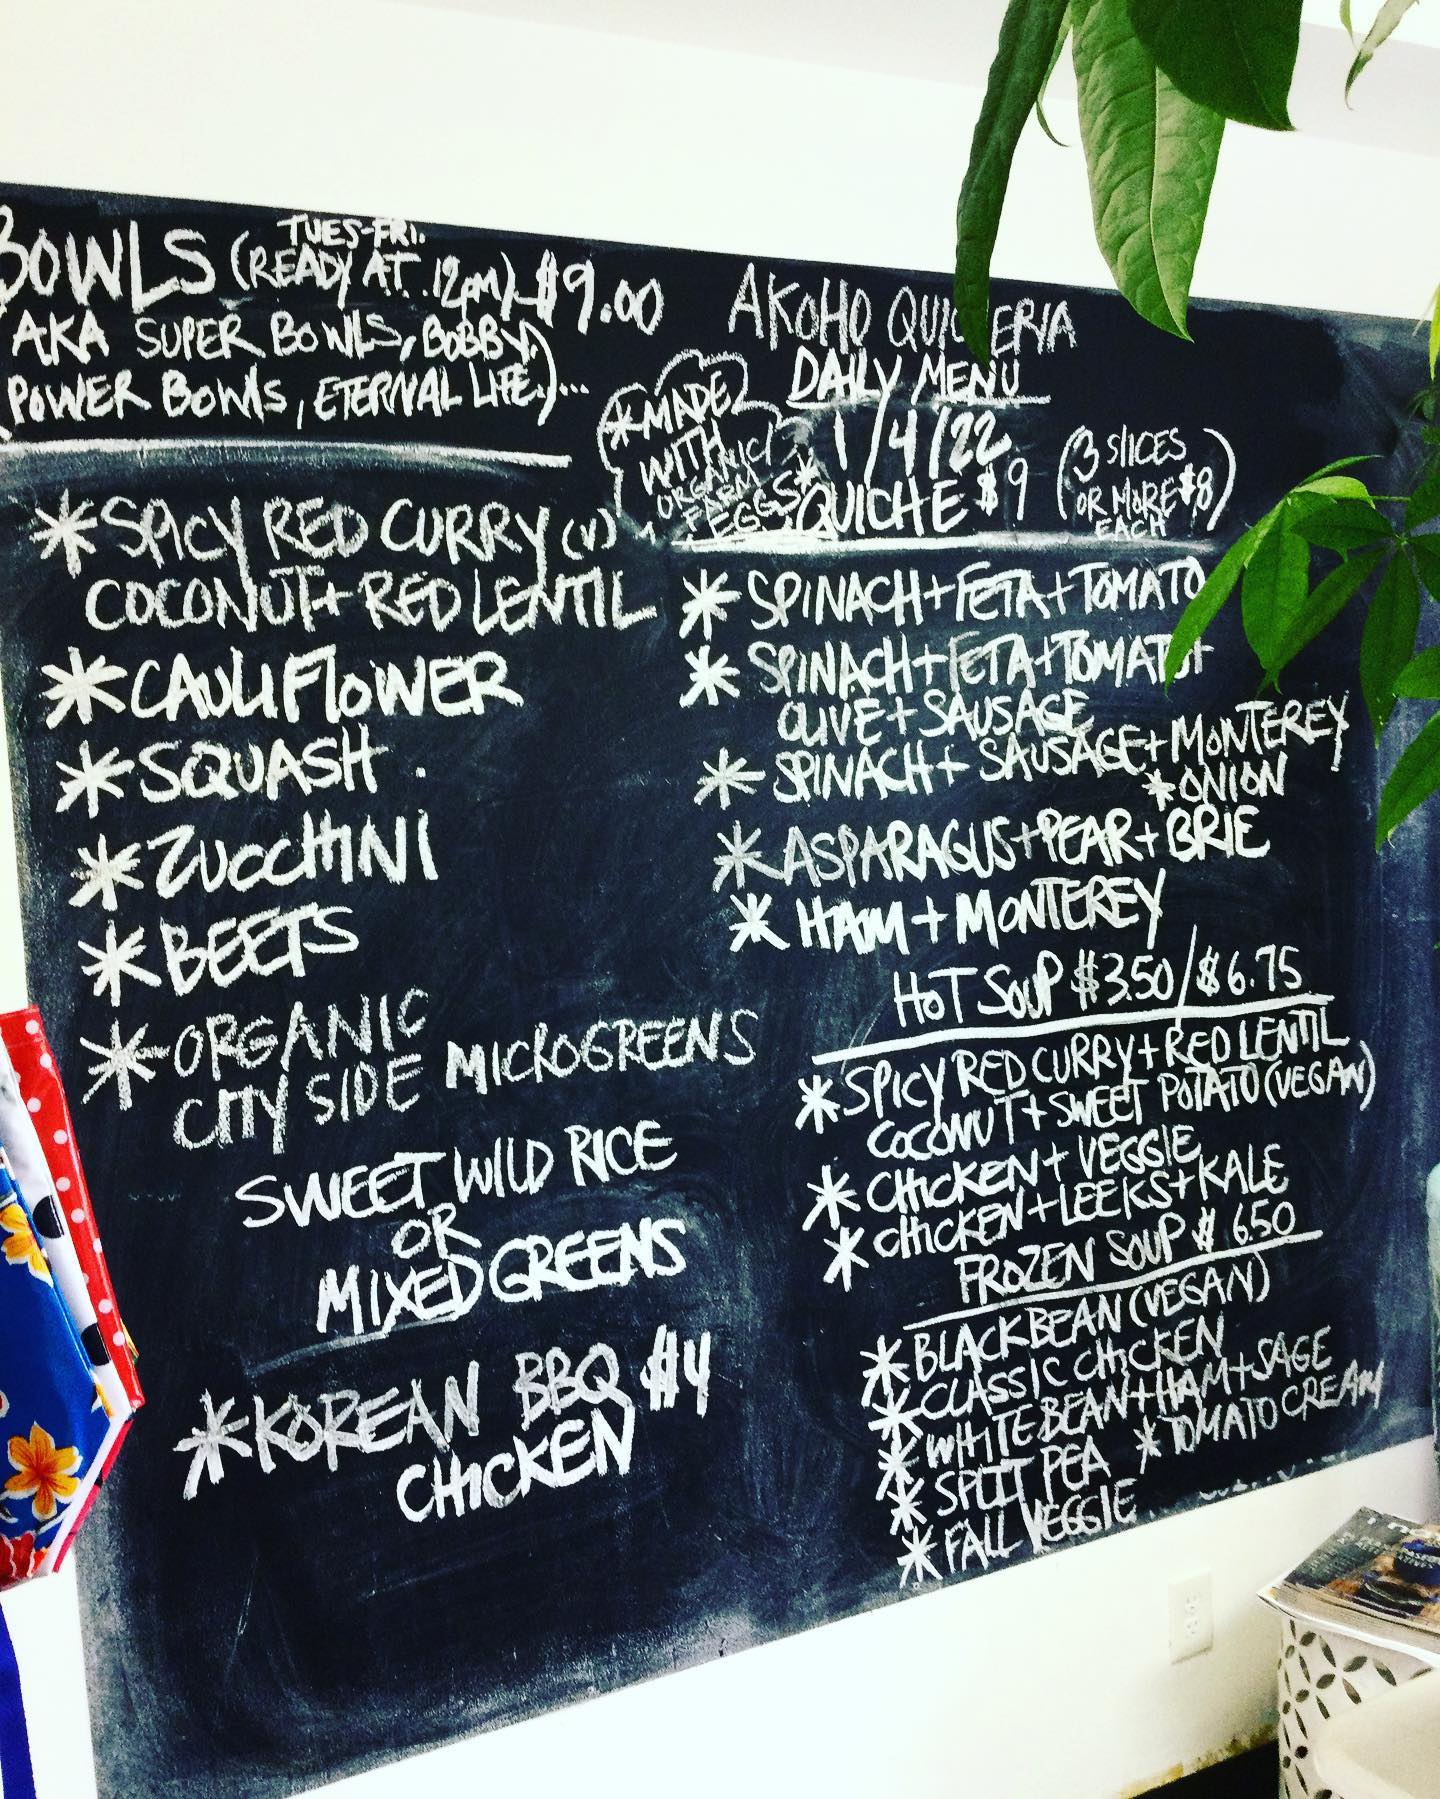 BOWLS (READY AT 12pm) $9.00
TUES-FRI.
AKA SUPER BOWLS, BOBBY
POWER BOWLS, ETERNAL LIFE.)...
*SPICY RED CURRY (V)
COCONUT + RED LENTIL
*CAULIFLOWER
*SQUASH
*ZUCCHINI
*BEETS
*ORGANIC
CITY SIDE MICROGREENS
SWEET WILD RICE
OR
MIXED GREENS
*KOREAN BBQ $4
CHICKEN
AKOHO
DAILY MENU
1/4/22
*MADE
WITH
ORGANIC
FARM
EGGS*
QUICHE $9
(3 SLICES
OR MORE $8)
EACH
*SPINACH+FETA+TOMATO
*SPINACH+FETA+TOMATO+
OLIVE+SAUSAGE
*SPINACH+SAUSAGE+MONTEREY
*ONION
*ASPARAGUS+PEAR+BRIE
*HAM+MONTEREY
HOT SOUP $3.50/$6.75
*SPICY RED CURRY+RED LENTIL
COCONUT+SWEET POTATO (VEGAN)
*CHICKEN+VEGGIE
*CHICKEN+LEEKS+KALE
FROZEN SOUP $6.50
*BLACK BEAN (VEGAN)
*CLASSIC CHICKEN
*WHITE BEAN+HAM+SAGE
*SPLIT PEA *TOMATO CREAM
*FALL VEGGIE